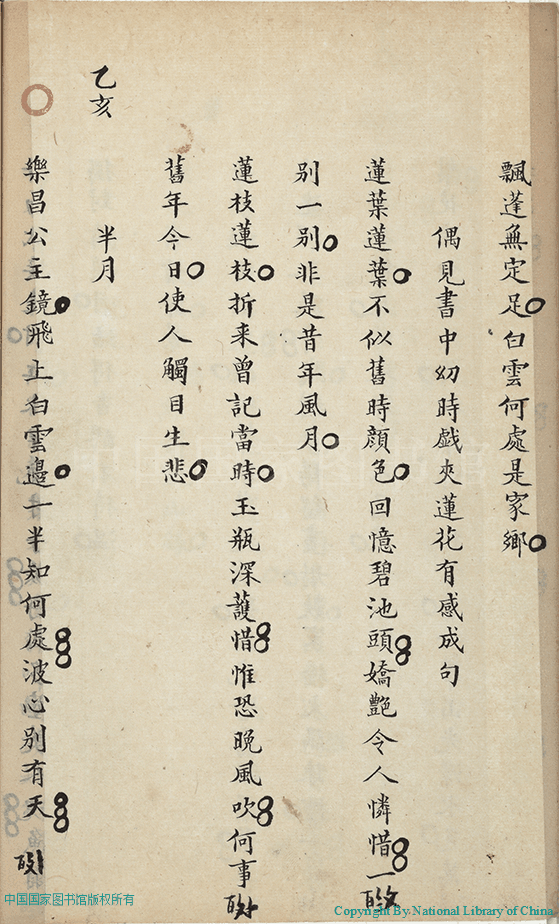 飄蓬無定足白雲何處是家鄉
偶見書中幼時戲夾蓮花有感成句
蓮葉蓮葉不似舊時顔色回憶碧池頭嬌艷令人憐惜一
别一别非是昔年風月
蓮枝蓮枝折来曾記當時玉瓶深護惜惟恐晚風吹何事
舊年今日使人觸目生悲
乙亥
半月
樂昌公主鏡飛上白雲邉一半知何處波心别有天
中国国家图书馆版权所有
Copyright By National Library of China